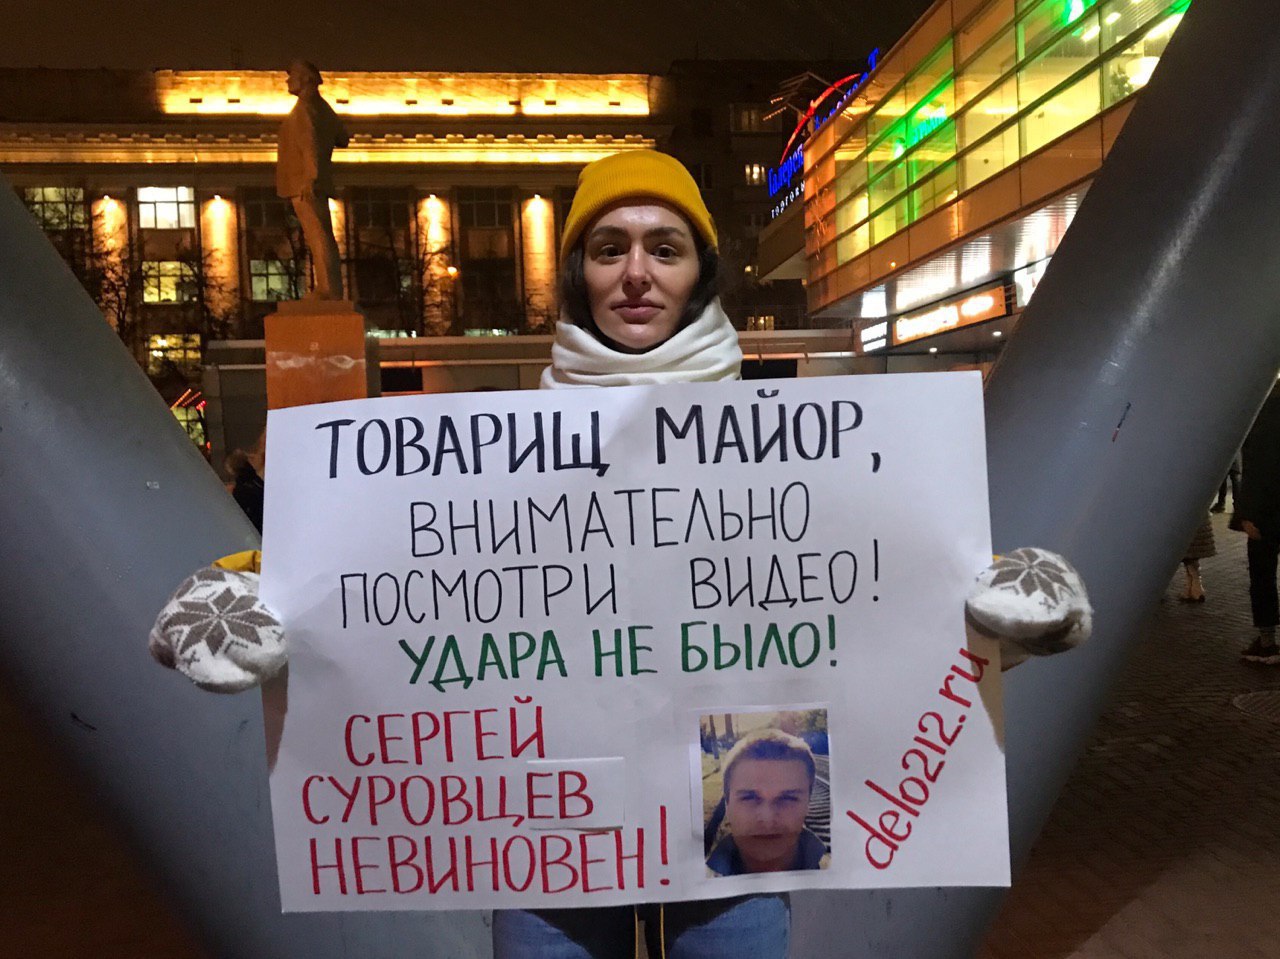 ТОВАРИЩ МАЙОР,
ВНИМАТЕЛЬНО
ПОСМОТРИ ВИДЕО!
УДАРА НЕ БЫЛО!
СЕРГЕЙ
СУРОВЦЕВ
НЕВИНОВЕН!
delo212.ru